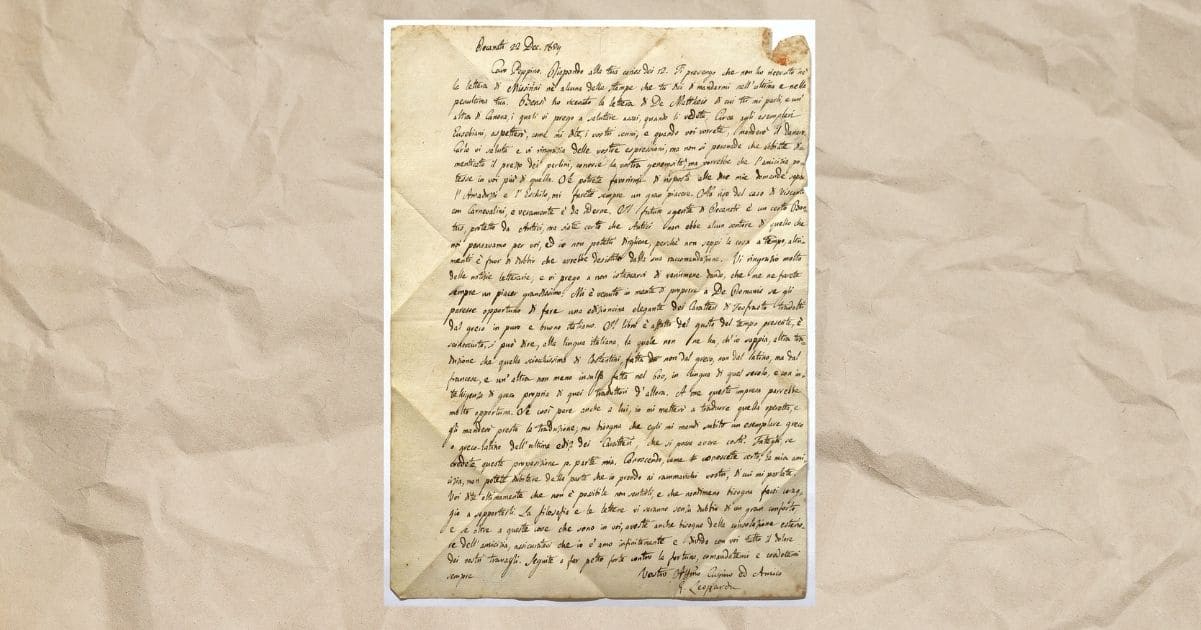 Recanati 22 Dec. 1824
Caro Peppino. Rispondo alla tua cara dei 12. Ti prevengo che non ho ricevuto nè
la lettera di Missirini nè alcuna delle stampe che tu dici di mandarmi nell'ultima e nella
penultima tua. Bensì ho ricevuto la lettera di De Mattheis di cui tu mi parli, e un'
altra di Canova, i quali vi prego a salutare assai, quando li vedete. Circa agli esemplari
Eusebiani, aspetterò, come mi dite, i vostri cenni, e quando voi vorrete, manderò il danaro.
Carlo vi saluta e vi ringrazia delle vostre espressioni, ma non si persuade che abbiate di-
menticato il prezzo dei perlini, conosce la vostra generosità, ma vorrebbe che l'amicizia po-
tesse in voi più di quella. Se potrete favorirmi di risposta alle due mie domande sopra
l'Amaduzzi e l'Eschilo, mi farete sempre un gran piacere. Ho riso del caso di Visconti
con Carnevalini, e veramente è da ridere. Il futuro agente di Recanati è un certo
protetto da Antici, ma siate certo che Antici non ebbe alcun sentore di quello che
noi pensavamo per voi, ed io non potetti dirgliene, perchè non seppi la cosa a tempo, altri-
menti è fuor di dubbio che avrebbe desistito dalla sua raccomandazione. Vi ringrazio molto
delle notizie letterarie, e vi prego a non istancarvi di venirmene dando, che me ne farete
sempre un piacer grandissimo. Mi è venuto in mente di proporre a De Romanis se gli
paresse opportuno di fare una edizioncina elegante dei Caratteri di Teofrasto tradotti
dal greco in puro e buono italiano. Il libro è affatto del gusto del tempo presente, è
sconosciuto, si può dire, alla lingua italiana, la quale non ne ha, ch'io sappia, altra tra-
duzione che quella sciocchissima di Costantini, fatta non dal greco, non dal latino, ma dal
francese, e un'altra non meno insulsa fatta nel 600, in lingua di quel secolo, e con in-
telligenza di greco propria di quei traduttori d'allora. A me questa impresa parrebbe
molto opportuna. Se così pare anche a lui, io mi metterò a tradurre quella operetta, e
gli manderò presto la traduzione, ma bisogna che egli mi mandi subito un esemplare greco
o greco-latino dell'ultima ediz. dei Caratteri che si possa avere costì. Fategli, se
credete questa proposizione p. parte mia. Conoscendo, come conoscete certo, la mia ami-
cizia, non potete dubitare della parte che io prendo ai rammarichi vostri, di cui mi parlate.
Voi dite ottimamente che non è possibile non sentirli, e che nondimeno bisogna farsi corag-
gio a sopportarli. La filosofia e le lettere vi saranno senza dubbio di un gran conforto,
e se oltre a queste cose che sono in voi, avete anche bisogno della consolazione esterio-
re dell'amicizia, assicuratevi che io v'amo infinitamente e divido con voi tutto il dolore
dei vostri travagli. Seguite a far petto forte contro la fortuna, comandatemi e credetemi
sempre
Vostro Affmo Cugino ed Amico
G. Leopardi